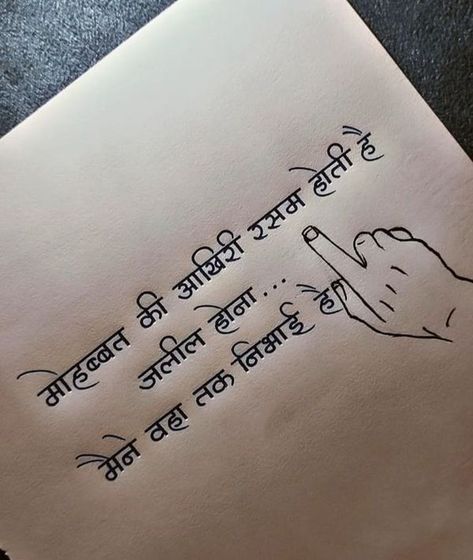 मोहब्बत की आखिरी रसम होती है
जलील होना...
मैने वहा तक निभाई है